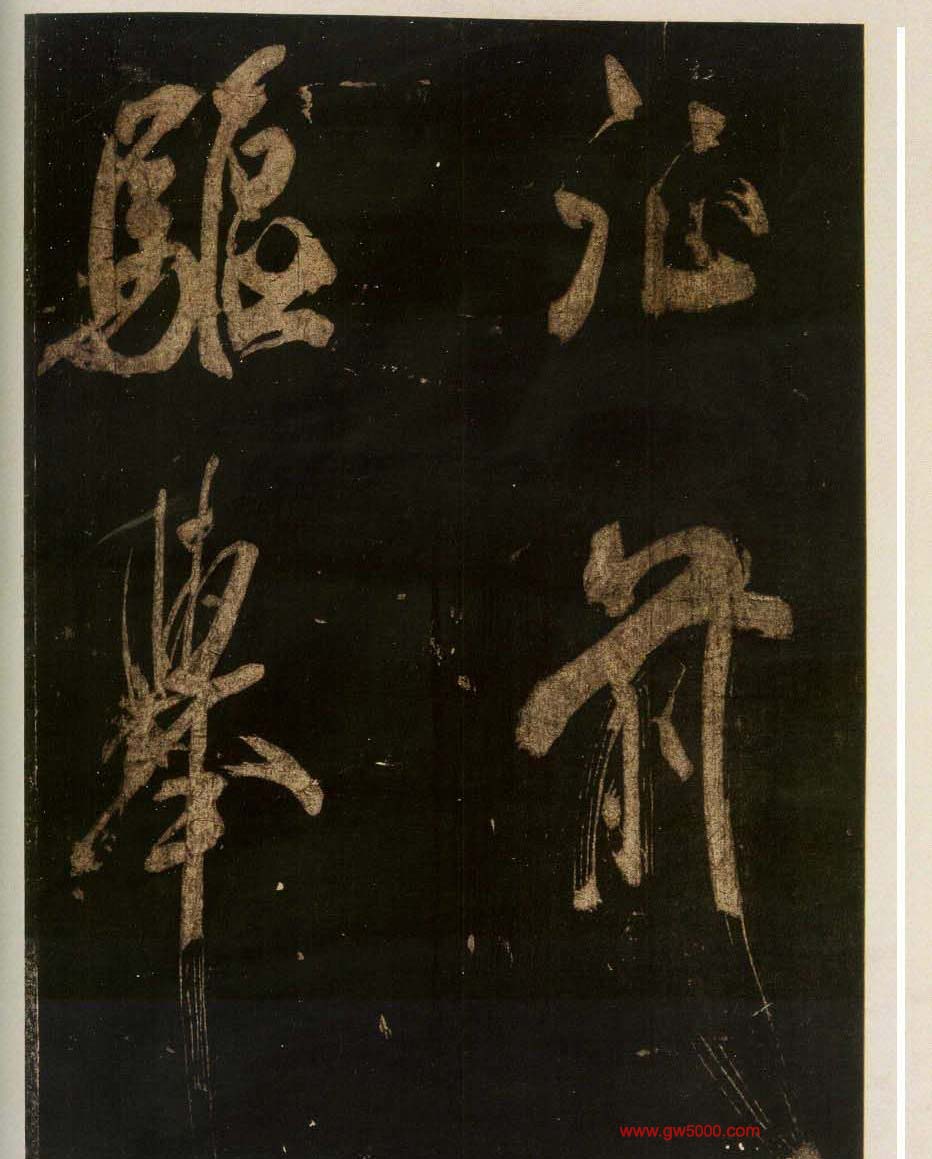 征前
驅舉
www.gw5000.com